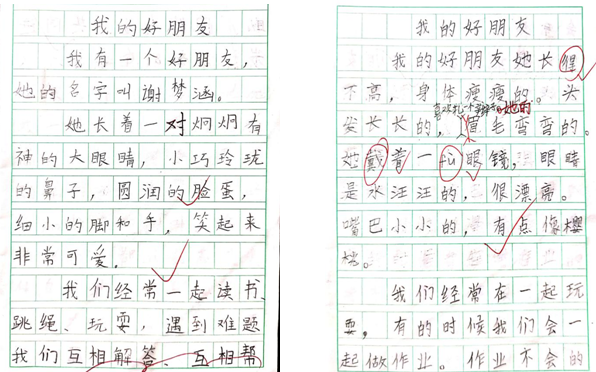 我的好朋友
我有一个好朋友，
她的名字叫谢梦涵。
她长着一对炯炯有
神的大眼睛，小巧玲珑
的鼻子，圆润的脸蛋，
细小的脚和手，笑起来
非常可爱。
我们经常一起读书、
跳绳、玩耍，遇到难题
我们互相解答、互相帮
我的好朋友
我的好朋友她长得
不高，身体瘦瘦的。头
喜欢扎一个 她的
发长长的，眉毛弯弯的。
她戴着一fù眼钱，眼睛
是水汪汪的，很漂亮。
嘴巴小小的，有点像樱
桃。
我们经常在一起玩
耍，有的时候我们会一
起做作业。作业不会的